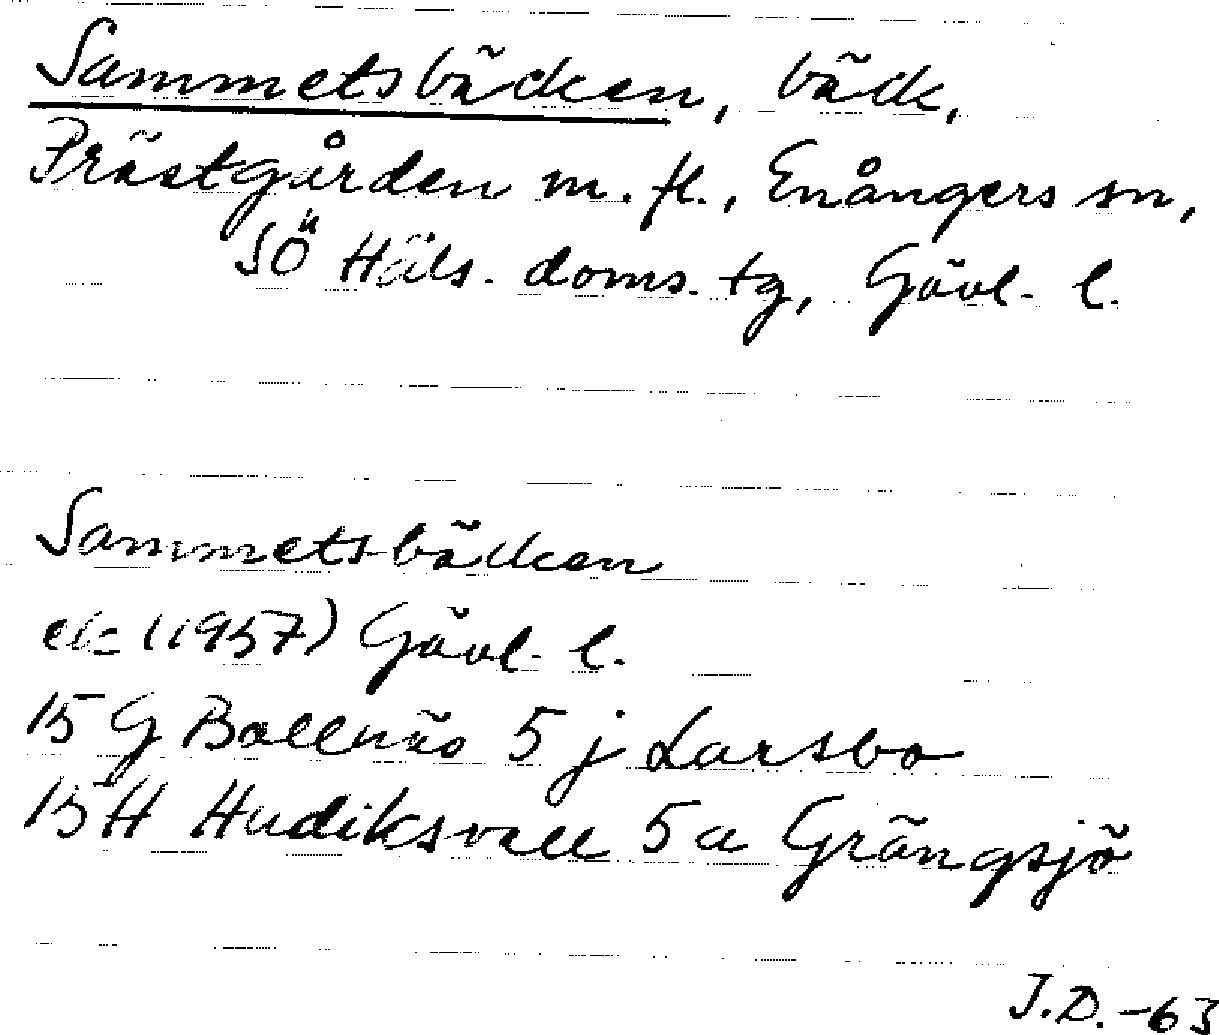 Sammetsbäcken, bäck,
Prästgården m. fl., Enångers sn,
SÖ Häls. doms. tg, Gävl. l.
Sammetsbäcken
ek (1957) Gävl. l.
15 G Bollnäs 5 j Larsbo
15 H Hudiksvall 5 a Grängsjö
J.D. -63